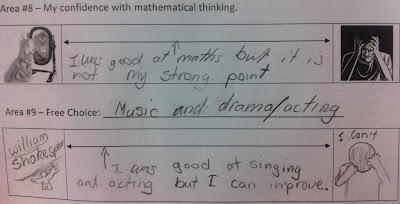 Area #8 – My confidence with mathematical thinking.
I was good at maths but it is
not my strong point
Area #9 – Free Choice: Music and drama/acting
william
Shakespear
I Can't
I was good at singing
and acting but I can improve.